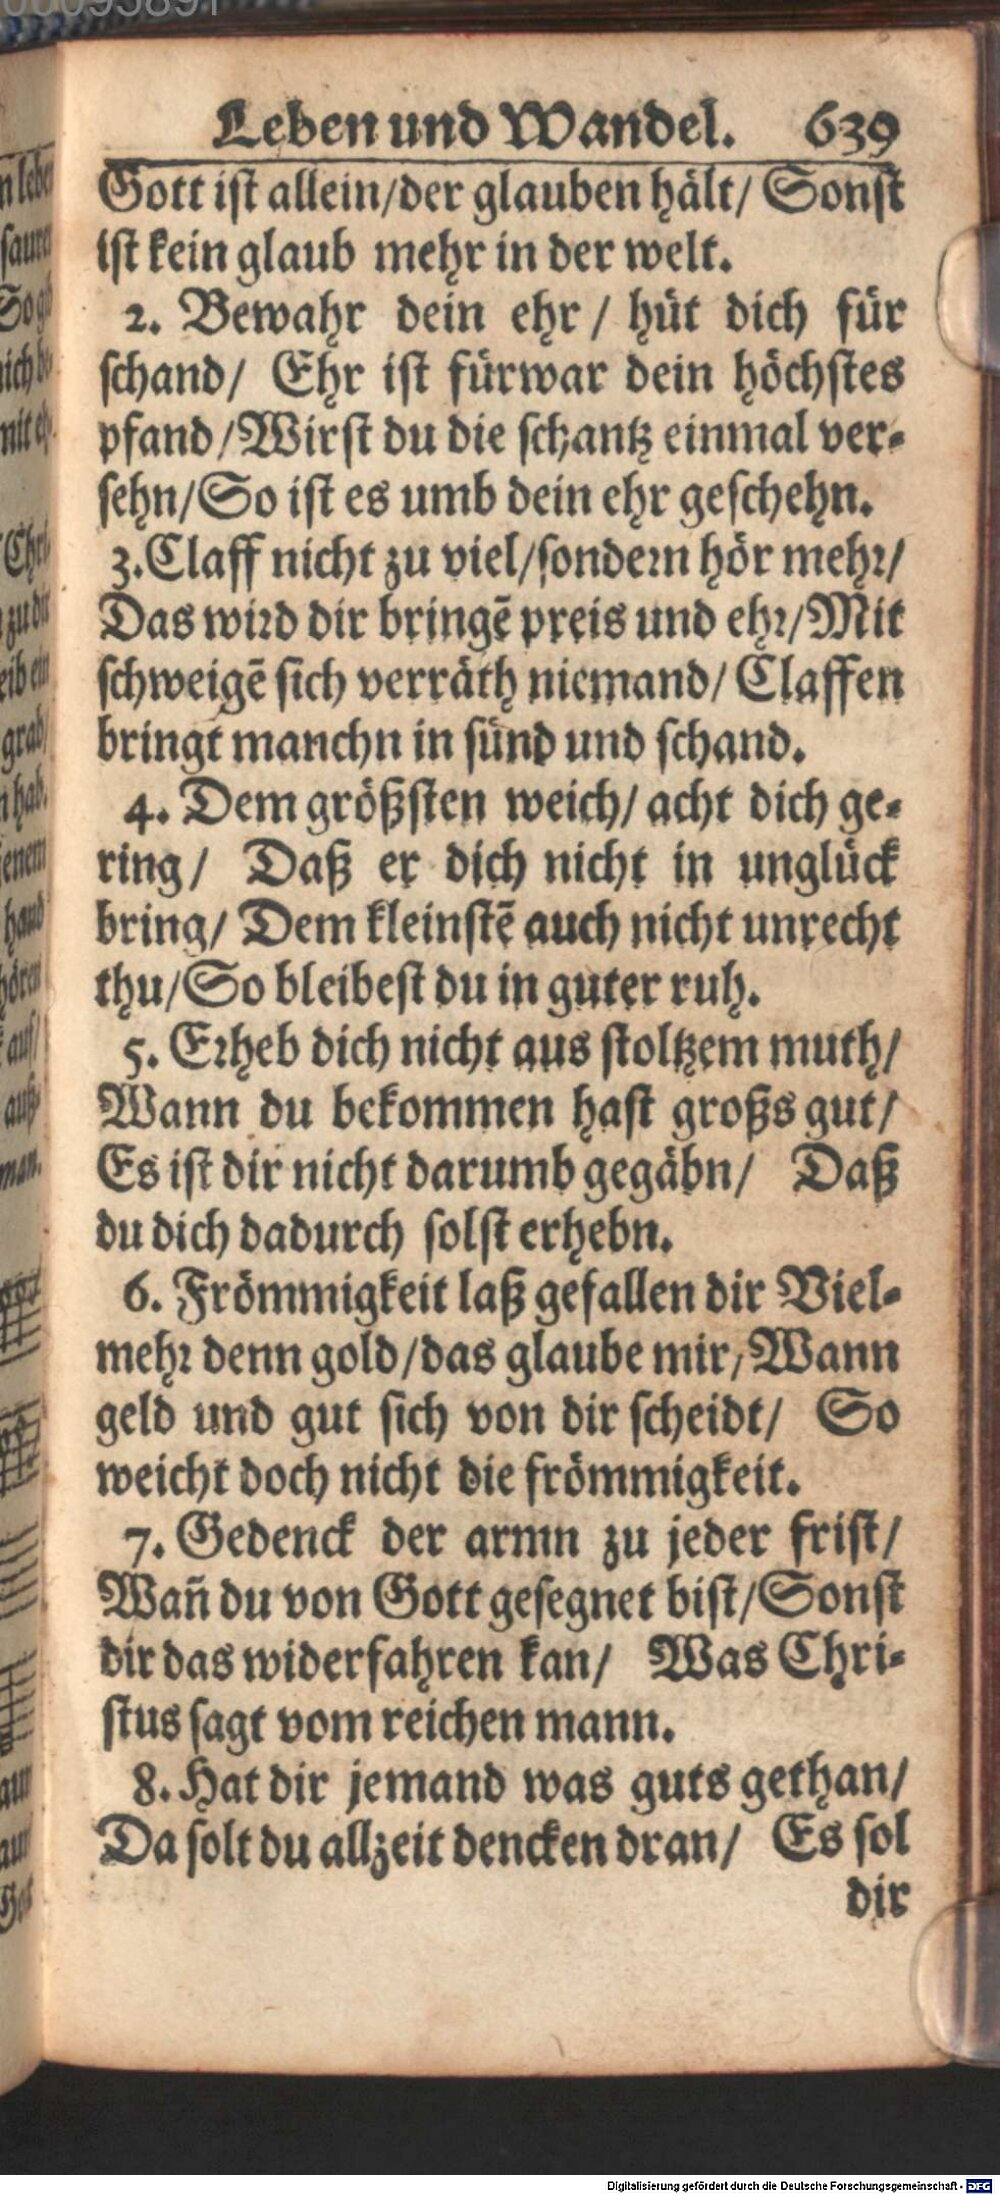 Leben und Wandel. 639
Gott ist allein/der glauben hält/ Sonst
ist kein glaub mehr in der welt.
2. Bewahr dein ehr / hüt dich für
schand/ Ehr ist fürwar dein höchstes
pfand/Wirst du die schantz einmal ver-
sehn/So ist es umb dein ehr geschehn.
3. Claff nicht zu viel/sondern hör mehr/
Das wird dir bringē preis und ehr/Mit
schweigē sich verräth niemand/ Claffen
bringt manchn in sünd und schand.
4. Dem größsten weich/ acht dich ge-
ring/ Daß er dich nicht in unglück
bring/ Dem kleinstē auch nicht unrecht
thu/So bleibest du in guter ruh.
5. Erheb dich nicht aus stoltzem muth/
Wann du bekommen hast großs gut/
Es ist dir nicht darumb gegäbn/ Daß
du dich dadurch solst erhebn.
6. Frömmigkeit laß gefallen dir Viel-
mehr denn gold/das glaube mir/Wann
geld und gut sich von dir scheidt/ So
weicht doch nicht die frömmigkeit.
7. Gedenck der armn zu jeder frist/
Wañ du von Gott gesegnet bist/Sonst
dir das widerfahren kan/ Was Chri-
stus sagt vom reichen mann.
8. Hat dir jemand was guts gethan/
Da solt du allzeit dencken dran/ Es sol
dir
Digitalisierung gefördert durch die Deutsche Forschungsgemeinschaft - DFG